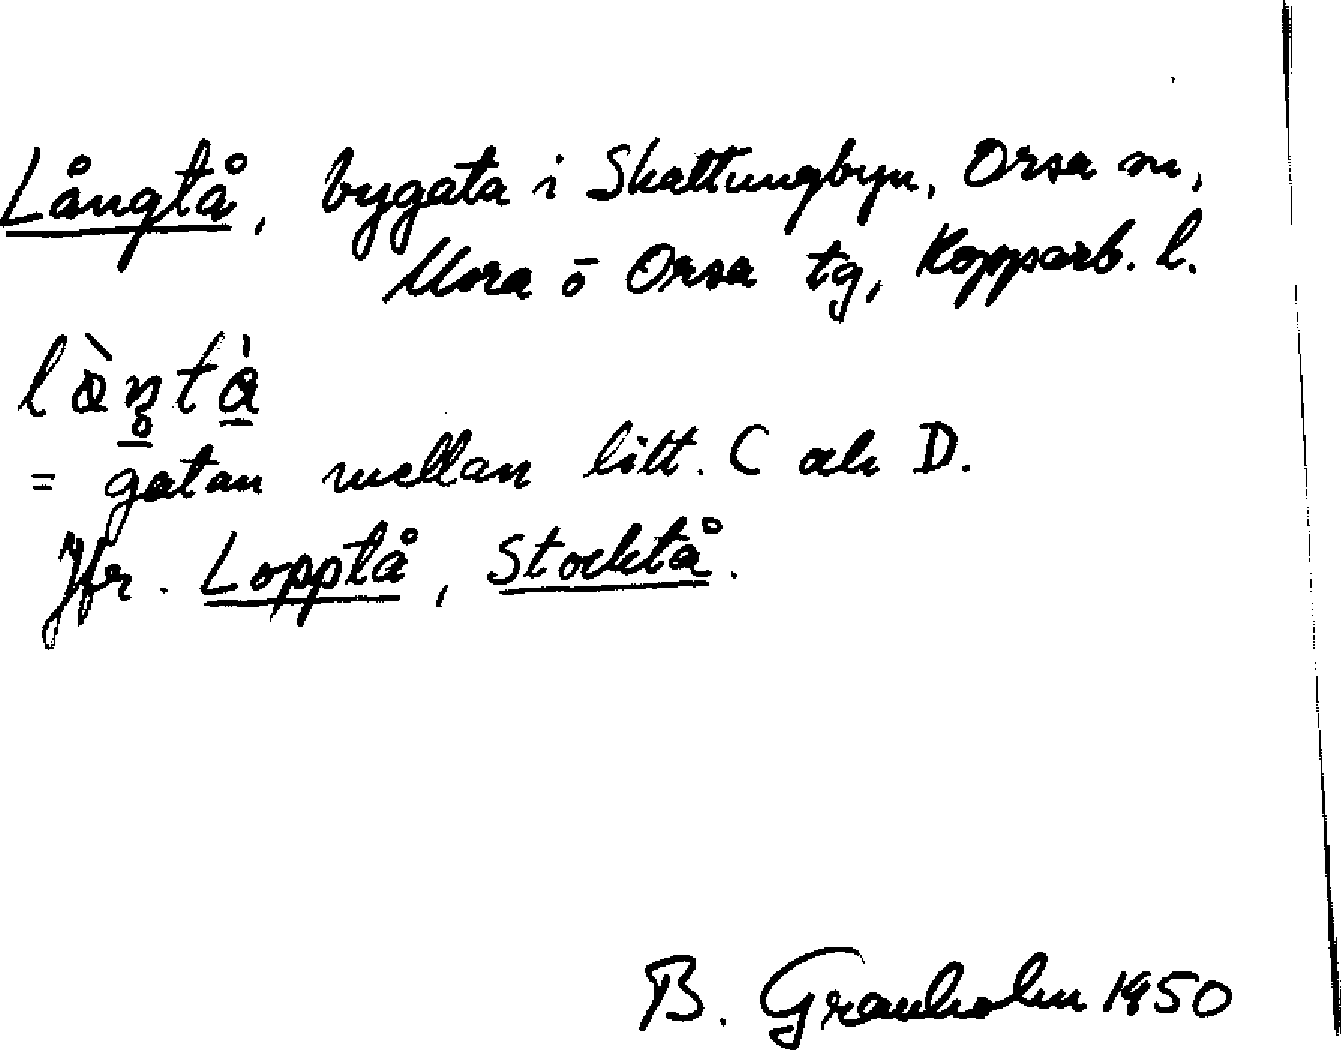 Långtå, bygata i Skattungbyn, Orsa sn,
Mora ō Orsa tg, Kopparb. l.
= gatan mellan litt. C och D.
Jfr. Lopptå, Stocktå.
B. Granholm 1950